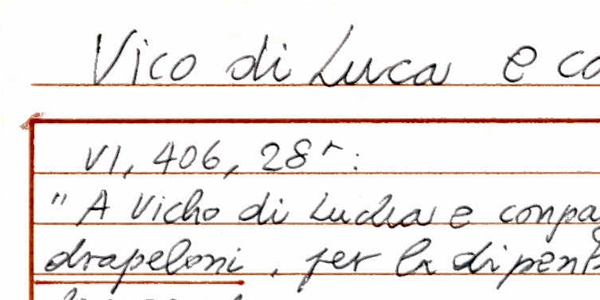 Vico di Luca e co
VI, 406, 28r:
"A Vicho di Lucha e conpa
drapeloni, per la dipent